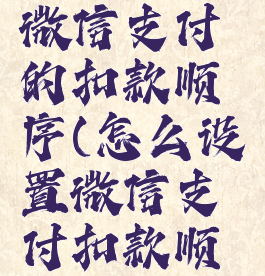 微信支付
的扣款顺
序(怎么设
置微信支
付扣款顺